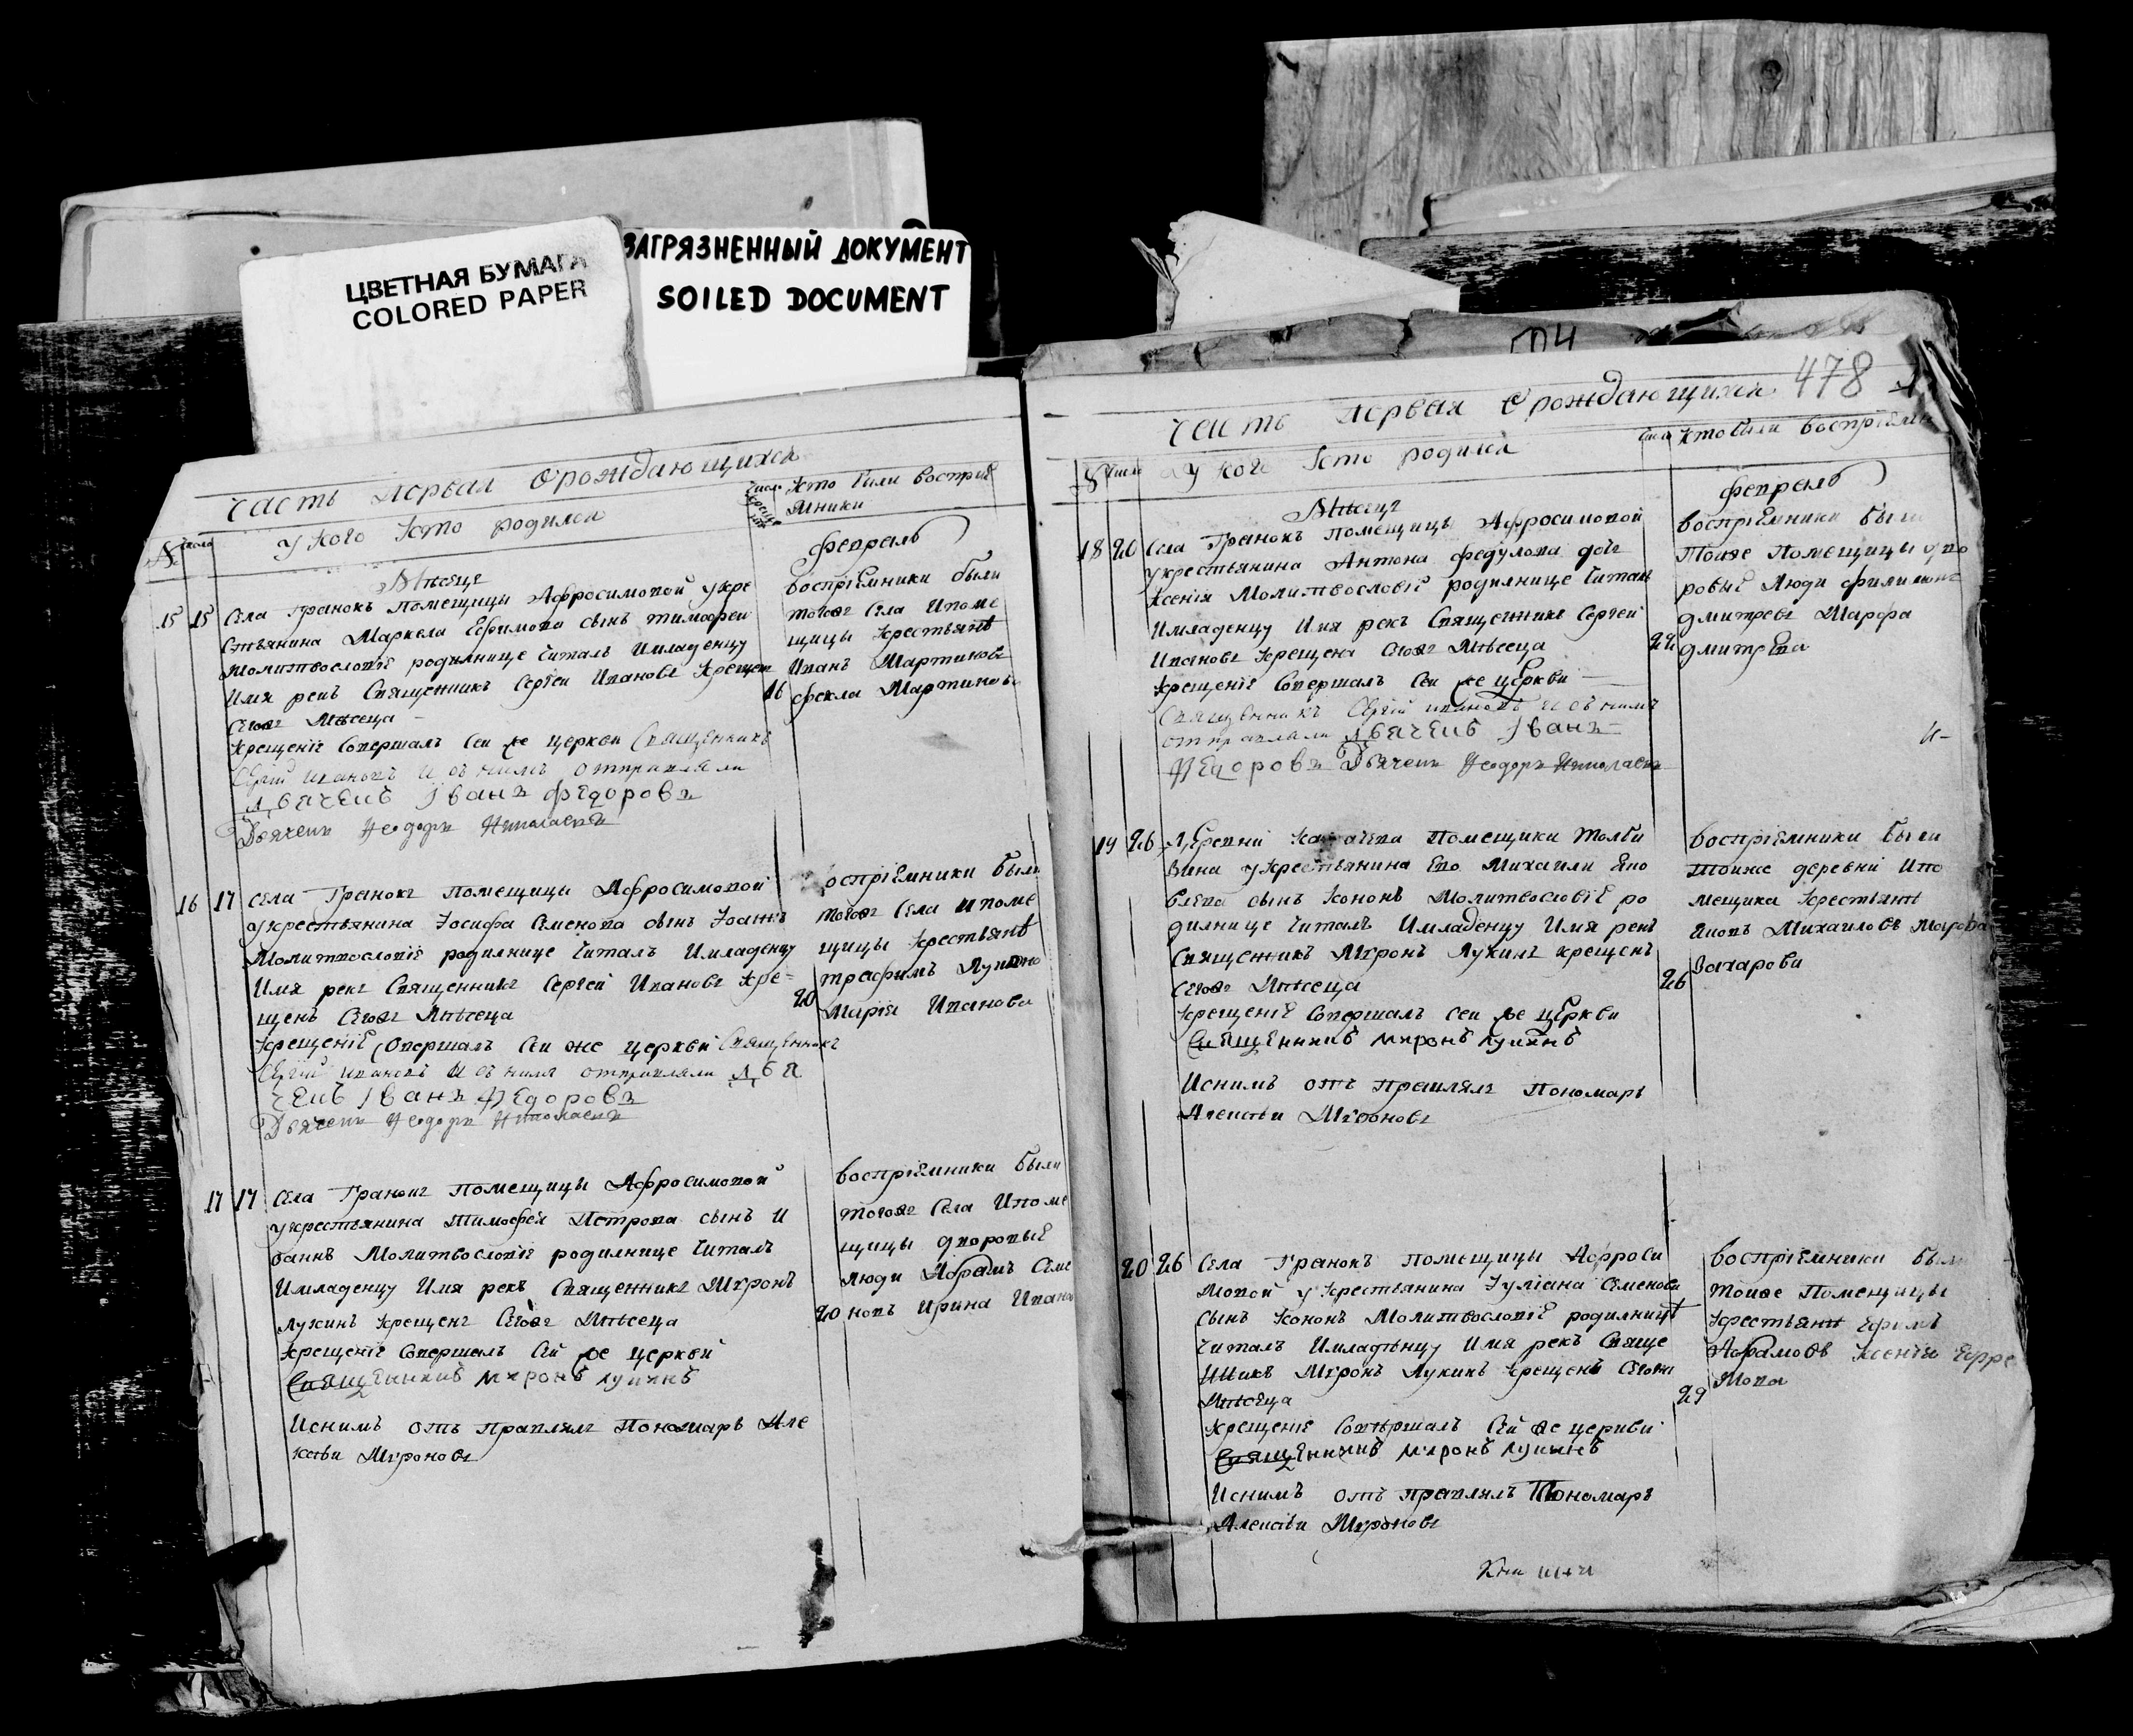 ЦВЕТНАЯ БУМАГА
COLORED PAPER
ЗАГРЯЗНЕННЫЙ ДОКУМЕНТ
SOILED DOCUMENT
Часть первая о рождающихся
№ число У кого кто родился
кто были восприем
мники
Месяце
февраль
15 15 Села Гранокъ Помещицы Афросимовой у кре
стьянина Маркела Ефимова сынъ тимофеи
Молитвословіе родилнице читалъ И младенцу
имя рекъ Священникъ Сергеи Ивановъ крещен
сегож месеца
Крещеніе совершалъ сеи же церкви Священникъ
Сергій Ивановъ и съ нимъ отправляли
дьячекъ Іванъ Федоровъ
Дьячекъ Феодоръ Николаевъ
восприемники были
тогож села и поме
щицы крестьянѣ
Иванъ Мартиновъ
16 фекла Мартинова
16 17 Села Гранокъ помещицы Афросимовой
у крестьянина Іосифа Семенова сынъ Іоаннъ
Молитвословіе родилнице читалъ И младенцу
имя рекъ Священникъ Сергей Ивановъ кре-
щенъ сегож месеца
Крещеніе совершалъ сеи же церкви Священникъ
Сергій Ивановъ и съ нимъ отправляли дья
чекъ Іванъ Федоровъ
Дьячекъ Феодоръ Николаевъ
оспріемники были
тогож села и поме
щицы крестьянѣ
трафимъ
20 Марія Иванова
17 17 Села Гранокъ помещицы Афросимовой
у крестьянина Тимофея Петрова сынъ И
ваннъ Молитвословіе родилнице читалъ
И младенцу имя рекъ Священникъ Мѵронъ
Лукинъ крещенъ сегож месеца
Крещеніе совершалъ сей же церкви
Священникъ Мѵронъ Лукинъ
И с нимъ отъ правлялъ Пономарь Але
ксѣи Мѵроновъ
воспріемники были
тогож села и поме
щицы дворовые
люди Абрамъ Семе
20 новъ Ирина Ивано
478
Часть первая о рождающихся
№ число У кого кто родился
кто были воспріем
Месяце
февраль
18 20 Села Гранокъ помещицы Афросимовой
у крестьянина Антона федулова дочь
Ксенія Молитвословіе родилнице читалъ
И младенцу имя рекъ Священникъ Сергей
Ивановъ крещена сегож месеца
Крещеніе совершалъ сеи же церкви
Священникъ Сергій Ивановъ и съ нимъ
отправляли дьячекъ Іванъ
Федоровъ Дьячекъ Феодоръ Николаевъ
воспріемники были
тоиже помещицы дво
ровые люди филимонъ
дмитревъ Марфа
22 дмитрева
19 26 Деревни помещика толби
вина у крестьянина ево Михаили Яко
влева сынъ Кононъ Молитвословіе ро
дилнице читалъ И младенцу имя рекъ
Священникъ Мѵронъ Лукинъ крещенъ
сегож месеца
Крещеніе совершалъ сеи же церкви
Священникъ Мѵронъ Лукинъ
И с нимъ отъ правлялъ Пономарь
Алексѣи Мѵроновъ
воспріемники были
тоиже деревни и по
мещика крестьянѣ
Яковъ Михаиловъ Марфа
26 Захарова
20 26 Села Гранокъ помещицы Афроси
мовой у крестьянина Іуліана Семенова
сынъ Кононъ Молитвословіе родилницѣ
читалъ И младѣнцу имя рекъ Свяще
нникъ Мѵронъ Лукинъ крещенъ сегож
месеца
Крещеніе совѣршалъ сей же церкви
Священникъ Мѵронъ Лукинъ
И с нимъ отъ правлялъ Пономарь
Алексѣи Мѵроновъ
воспріемники были
тоиже помещицы
крестьяни Ефимъ
Абрамовъ Ксенія Ефре
29 мова